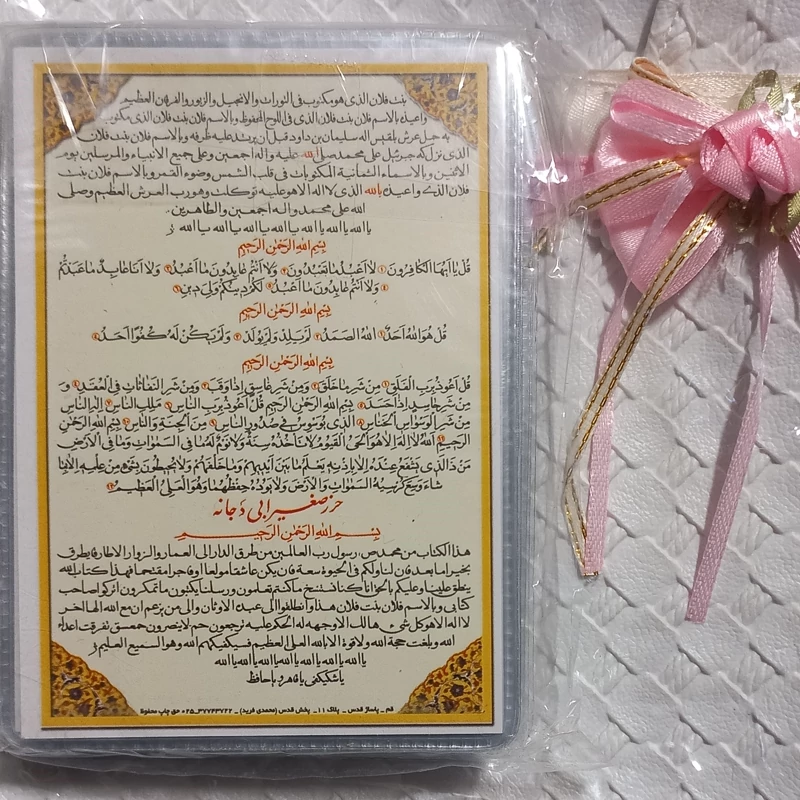 بنت فلان الذی هو مکتوب فی التورات والانجیل والزبور والفرقان العظیم
واعیذه بالاسم فلان بنت فلان الذی فی اللوح المحفوظ وبالاسم فلان بنت فلان الذی مکتوب
به جبل عرش بلقیس اله سلیمان بن داود قبل ان یرتد علیه طرفه وبالاسم فلان بنت فلان
الذی نزل به جبرئیل علی محمد صلی الله علیه واله اجمعین وعلی جمیع الانبیاء والمرسلین یوم
الاثنین وبالاسماء الثمانیة المکتوبات فی قلب الشمس وضوء القمر وبالاسم فلان بنت
فلان الذی واعیذه بالله الذی لا اله الا هو علیه توکلت وهو رب العرش العظیم وصلی
الله علی محمد واله اجمعین والطاهرین
یا الله یا الله یا الله یا الله یا الله یا الله یا الله
بِسْمِ اللهِ الرَّحْمٰنِ الرَّحِیمِ
قُلْ یَا اَیُّهَا الْکَافِرُونَ ۱ لَا اَعْبُدُ مَا تَعْبُدُونَ ۲ وَلَا اَنْتُمْ عَابِدُونَ مَا اَعْبُدُ ۳ وَلَا اَنَا عَابِدٌ مَا عَبَدْتُمْ
۴ وَلَا اَنْتُمْ عَابِدُونَ مَا اَعْبُدُ ۵ لَکُمْ دِینُکُمْ وَلِیَ دِینِ ۶
بِسْمِ اللهِ الرَّحْمٰنِ الرَّحِیمِ
قُلْ هُوَ اللهُ اَحَدٌ ۱ اللهُ الصَّمَدُ ۲ لَمْ یَلِدْ وَلَمْ یُولَدْ ۳ وَلَمْ یَکُنْ لَهُ کُفُوًا اَحَدٌ ۴
بِسْمِ اللهِ الرَّحْمٰنِ الرَّحِیمِ
قُلْ اَعُوذُ بِرَبِّ الْفَلَقِ ۱ مِنْ شَرِّ مَا خَلَقَ ۲ وَمِنْ شَرِّ غَاسِقٍ اِذَا وَقَبَ ۳ وَمِنْ شَرِّ النَّفَّاثَاتِ فِی الْعُقَدِ ۴ وَ
مِنْ شَرِّ حَاسِدٍ اِذَا حَسَدَ ۵ بِسْمِ اللهِ الرَّحْمٰنِ الرَّحِیمِ قُلْ اَعُوذُ بِرَبِّ النَّاسِ ۱ مَلِکِ النَّاسِ ۲ اِلٰهِ النَّاسِ
مِنْ شَرِّ الْوَسْوَاسِ الْخَنَّاسِ الَّذِی یُوَسْوِسُ فِی صُدُورِ النَّاسِ مِنَ الْجِنَّةِ وَالنَّاسِ بِسْمِ اللهِ الرَّحْمٰنِ
الرَّحِیمِ اللهُ لَا اِلٰهَ اِلَّا هُوَ الْحَیُّ الْقَیُّومُ لَا تَأْخُذُهُ سِنَةٌ وَلَا نَوْمٌ لَهُ مَا فِی السَّمٰوَاتِ وَمَا فِی الْاَرْضِ
مَنْ ذَا الَّذِی یَشْفَعُ عِنْدَهُ اِلَّا بِاِذْنِهِ یَعْلَمُ مَا بَیْنَ اَیْدِیهِمْ وَمَا خَلْفَهُمْ وَلَا یُحِیطُونَ بِشَیْءٍ مِنْ عِلْمِهِ اِلَّا بِمَا
شَاءَ وَسِعَ کُرْسِیُّهُ السَّمٰوَاتِ وَالْاَرْضَ وَلَا یَؤُدُهُ حِفْظُهُمَا وَهُوَ الْعَلِیُّ الْعَظِیمُ
حرز صغیر ابی دجانه
بِسْمِ اللهِ الرَّحْمٰنِ الرَّحِیمِ
هذا الکتاب من محمد ص رسول رب العالمین من طرق الدار الی العمار والزوار الا طارقا یطرق
بخیر اما بعد فان لنا ولکم فی الحیوة سعة فان یکن عاشقا مولعا او فاجرا مقتحما فهذا کتاب الله
ینطق علینا وعلیکم بالحق انا کنا نستنسخ ما کنتم تعملون ورسلنا یکتبون ما تمکرون اترکوا صاحب
کتابی وبالاسم فلان بنت فلان هذا وانطلقوا الی عبدة الاوثان والی من یزعم ان مع الله الها اخر
لا اله الا هو کل شیء هالک الا وجهه له الحکم والیه ترجعون حم لا ینصرون حمعسق تفرقت اعداء
الله وبلغت حجة الله ولا قوة الا بالله العلی العظیم فسیکفیکهم الله وهو السمیع العلیم
یا الله یا الله یا الله یا الله یا الله یا الله یا الله
یاهر و یا حافظ
قم _ پاساژ قدس _ پلاک ۱۱_ پخش قدس (محمدی فرید) _ ۳۷۷۴۳۷۴۲_۰۲۵ حق چاپ محفوظ